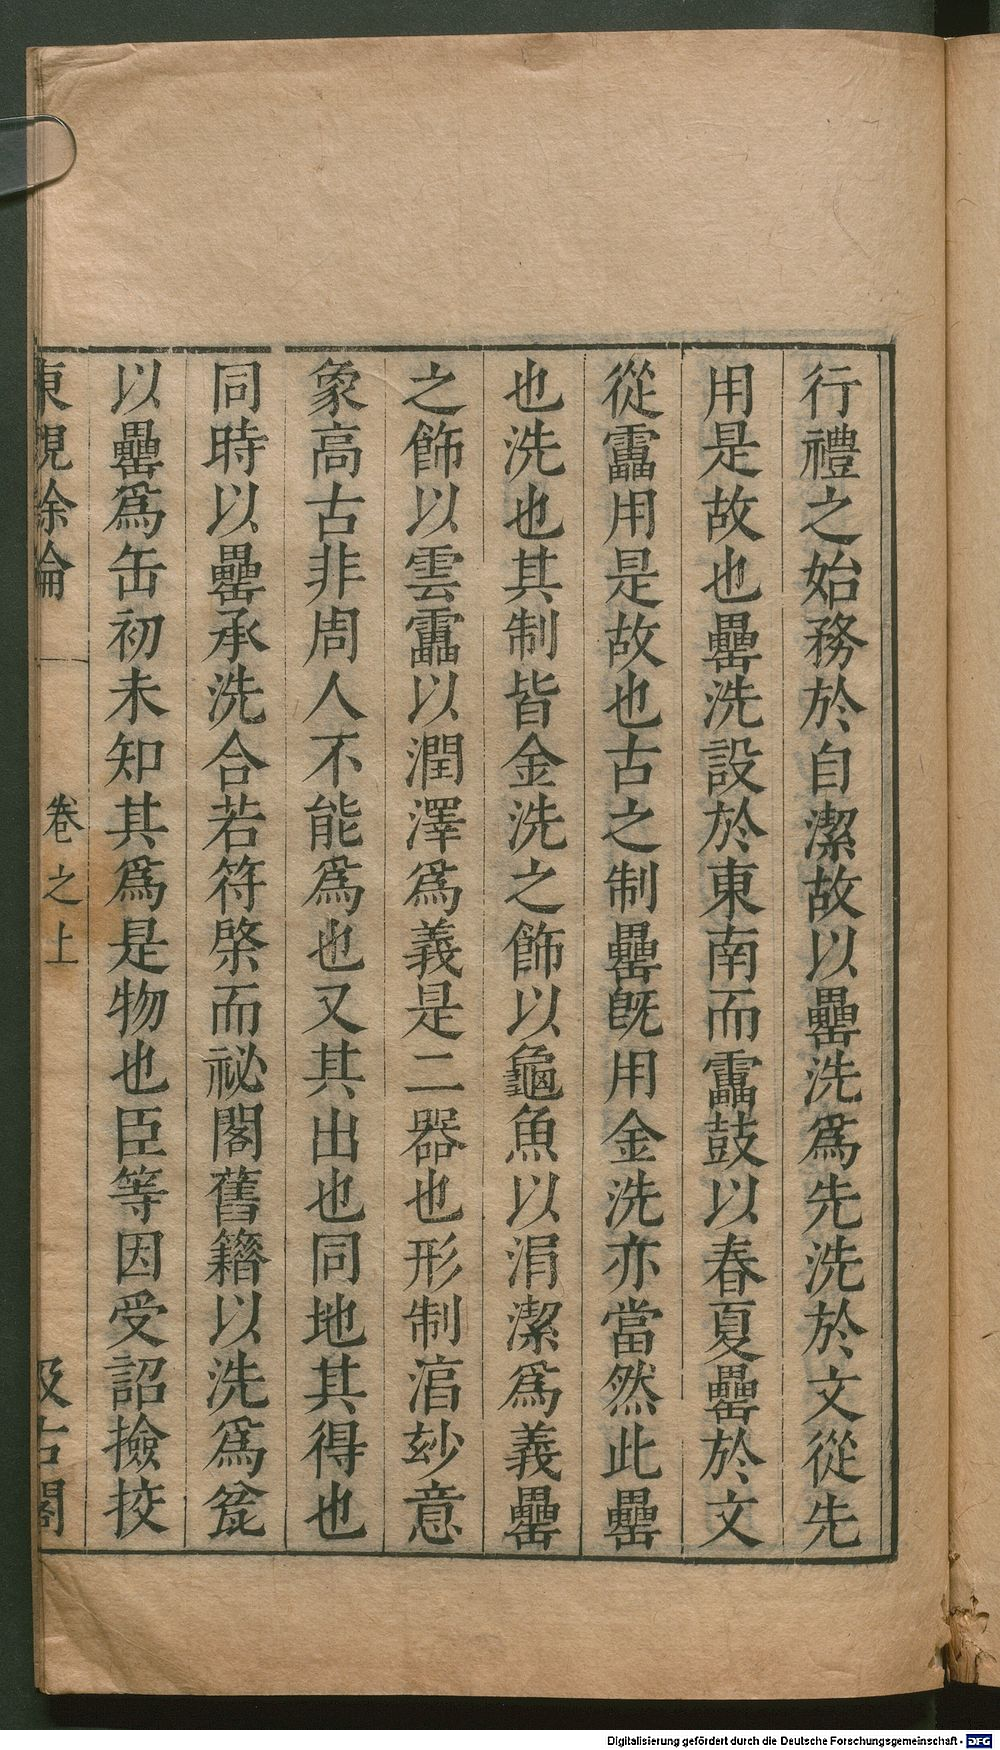 行禮之始務於自潔故以罍洗爲先洗於文從先
用是故也罍洗設於東南而靁鼓以春夏罍於文
從靁用是故也古之制罍旣用金洗亦當然此罍
也洗也其制皆金洗之飾以龜魚以涓潔爲義罍
之飾以雲靁以潤澤爲義是二器也形制㳷玅意
象高古非周人不能爲也又其出也同地其得也
同時以罍承洗合若符棨而祕閣舊籍以洗爲瓫
以罍爲缶初未知其爲是物也臣等因受詔撿挍
東觀餘論
卷之上
汲古閣
Digitalisierung gefördert durch die Deutsche Forschungsgemeinschaft - DFG